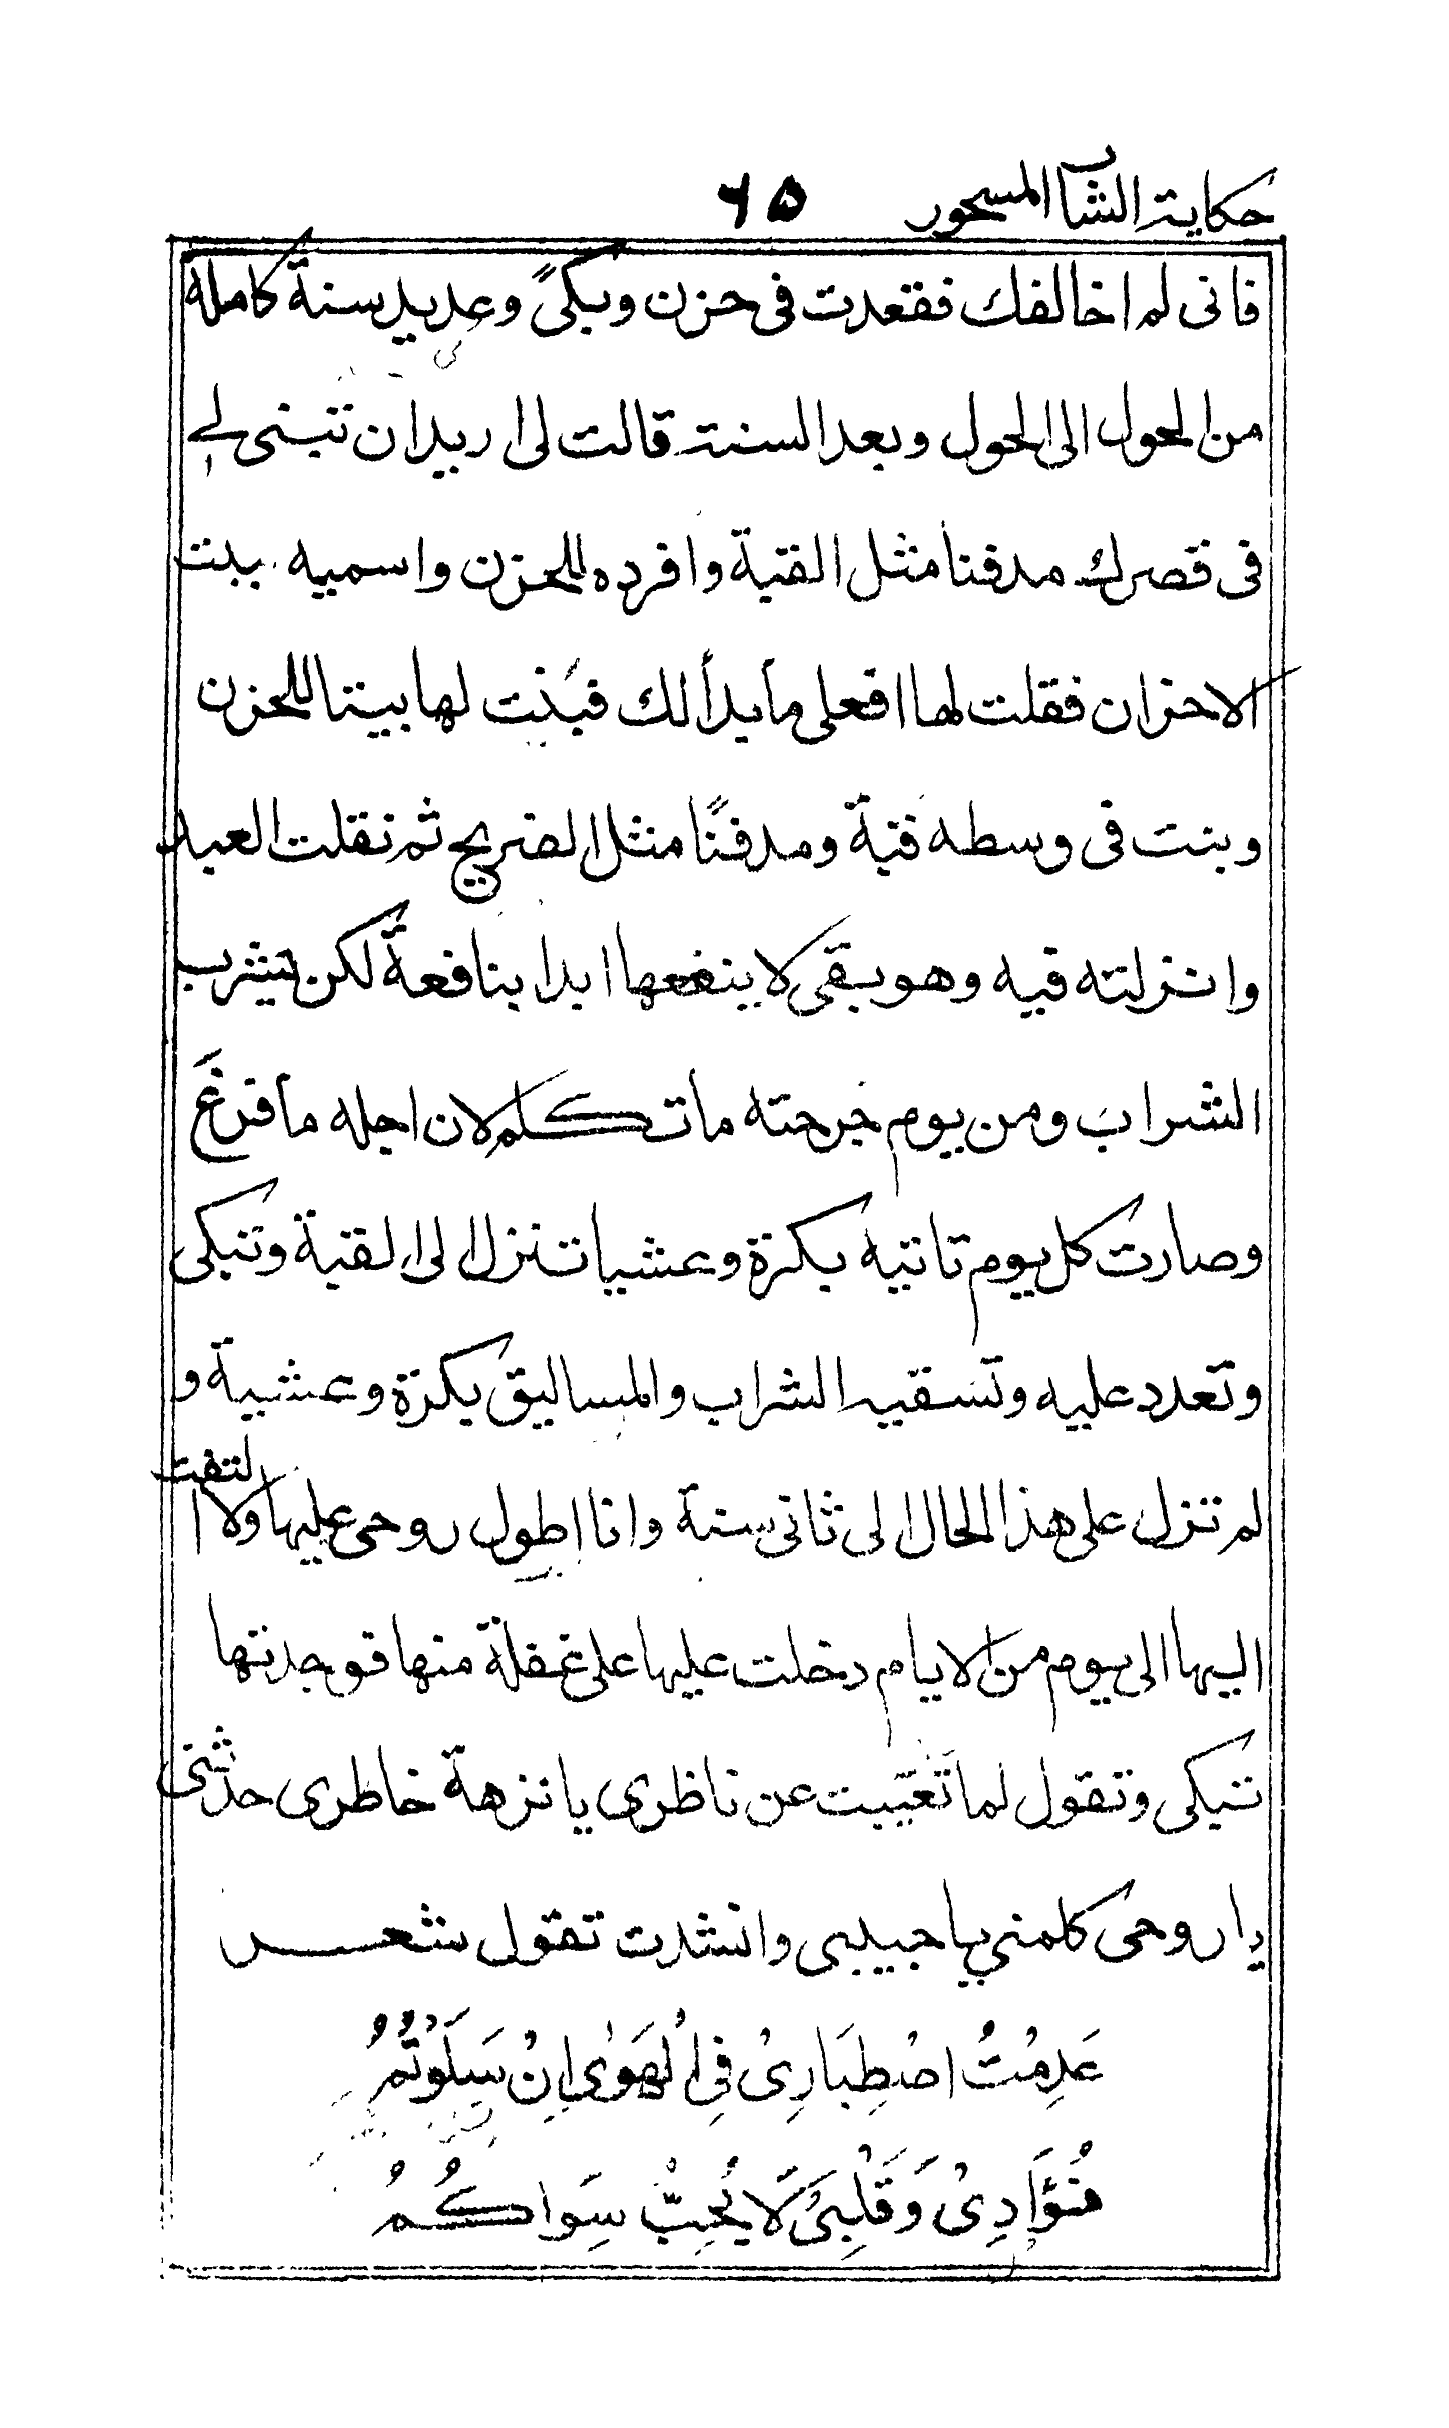 حكاية الشاب المسحور ٦٥
فانى لم اخالفك فقعدت فى حزن وبكىً وعديد سنة كاملة
من الحول الى الحول وبعد السنة قالت لى اريد ان تبنى لى
فى قصرك مدفنا مثل القبة وافرده للحزن واسميه بيت
الاحزان فقلت لها افعلى ما بدأ لك فبَنت لها بيتا للحزن
وبنت فى وسطه قبة ومدفنًا مثل الضريح ثم نقلت العبد
وانزلته فيه وهو بقى لا ينفعها ابدا بنافعة لكن يشرب
الشراب ومن يوم جرحته ما تكلم لان اجله ما فرغَ
وصارت كل يوم تاتيه بكرة وعشيا تنزل الى القبة وتبكى
وتعدد عليه وتسقيه الشراب والمساليق بكرة وعشية و
لم تزل على هذا الحال الى ثانى سنة وانا اطول روحى عليها ولا التفت
اليها الى يوم من الايام دخلت عليها على غفلة منها فوجدتها
تبكى وتقول لما تغيّبت عن ناظرى يا نزهة خاطرى حدثنى
يا روحى كلمنى يا حبيبى وانشدت تقول شعر
عَدِمْتُ اصْطِبَارِىْ فِى الْهَوٰى اِنْ سَلَوْتُمُ
فُؤَادِىْ وَقَلْبِىْ لَا يُحِبُّ سِوَاكُمُ